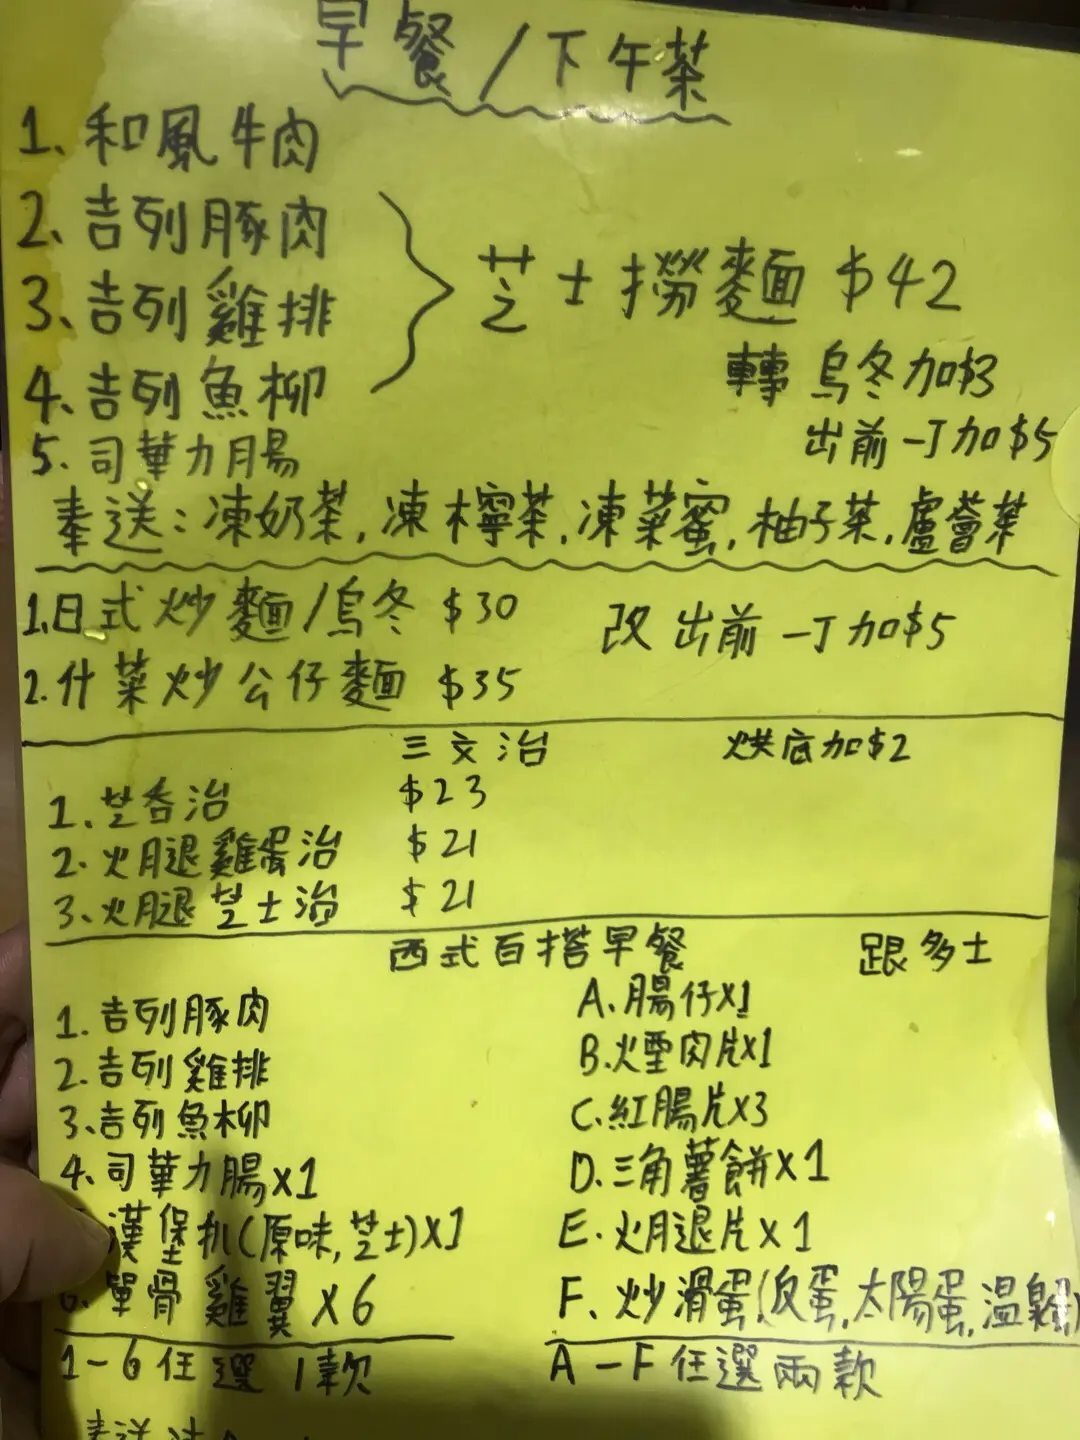 早餐/下午茶
1、和風牛肉
2、吉列豚肉
3、吉列雞排
4、吉列魚柳
5. 司華力腸
芝士撈麵 $42
轉烏冬加$3
出前一丁加$5
奉送：凍奶茶, 凍檸茶, 凍菜蜜, 柚子茶, 盧薈茶
1.日式炒麵/烏冬 $30
改出前一丁加$5
2.什菜炒公仔麵 $35
三文治
烘底加$2
1. 芝香治 $23
2. 火腿雞蛋治 $21
3. 火腿芝士治 $21
西式百搭早餐
跟多士
1. 吉列豚肉
A. 腸仔x1
2. 吉列雞排
B. 煙肉片x1
3. 吉列魚柳
C. 紅腸片x3
4. 司華力腸x1
D. 三角薯餅x1
漢堡扒(原味, 芝士)x1
E. 火腿片x1
6. 單骨雞翼x6
F. 炒滑蛋(反蛋, 太陽蛋, 温泉
1-6任選1款
A-F任選兩款
奉送